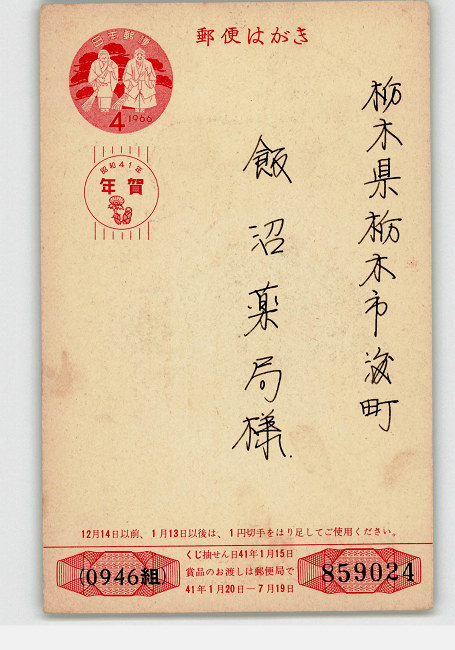 郵便はがき
日本郵便
4 1966
昭和41年
年賀
栃木県栃木市湊町
飯沼薬局様
12月14日以前、1月13日以後は、1円切手をはり足してご使用ください。
(0946組)
くじ抽せん日41年1月15日
賞品のお渡しは郵便局で
41年1月20日—7月19日
859024